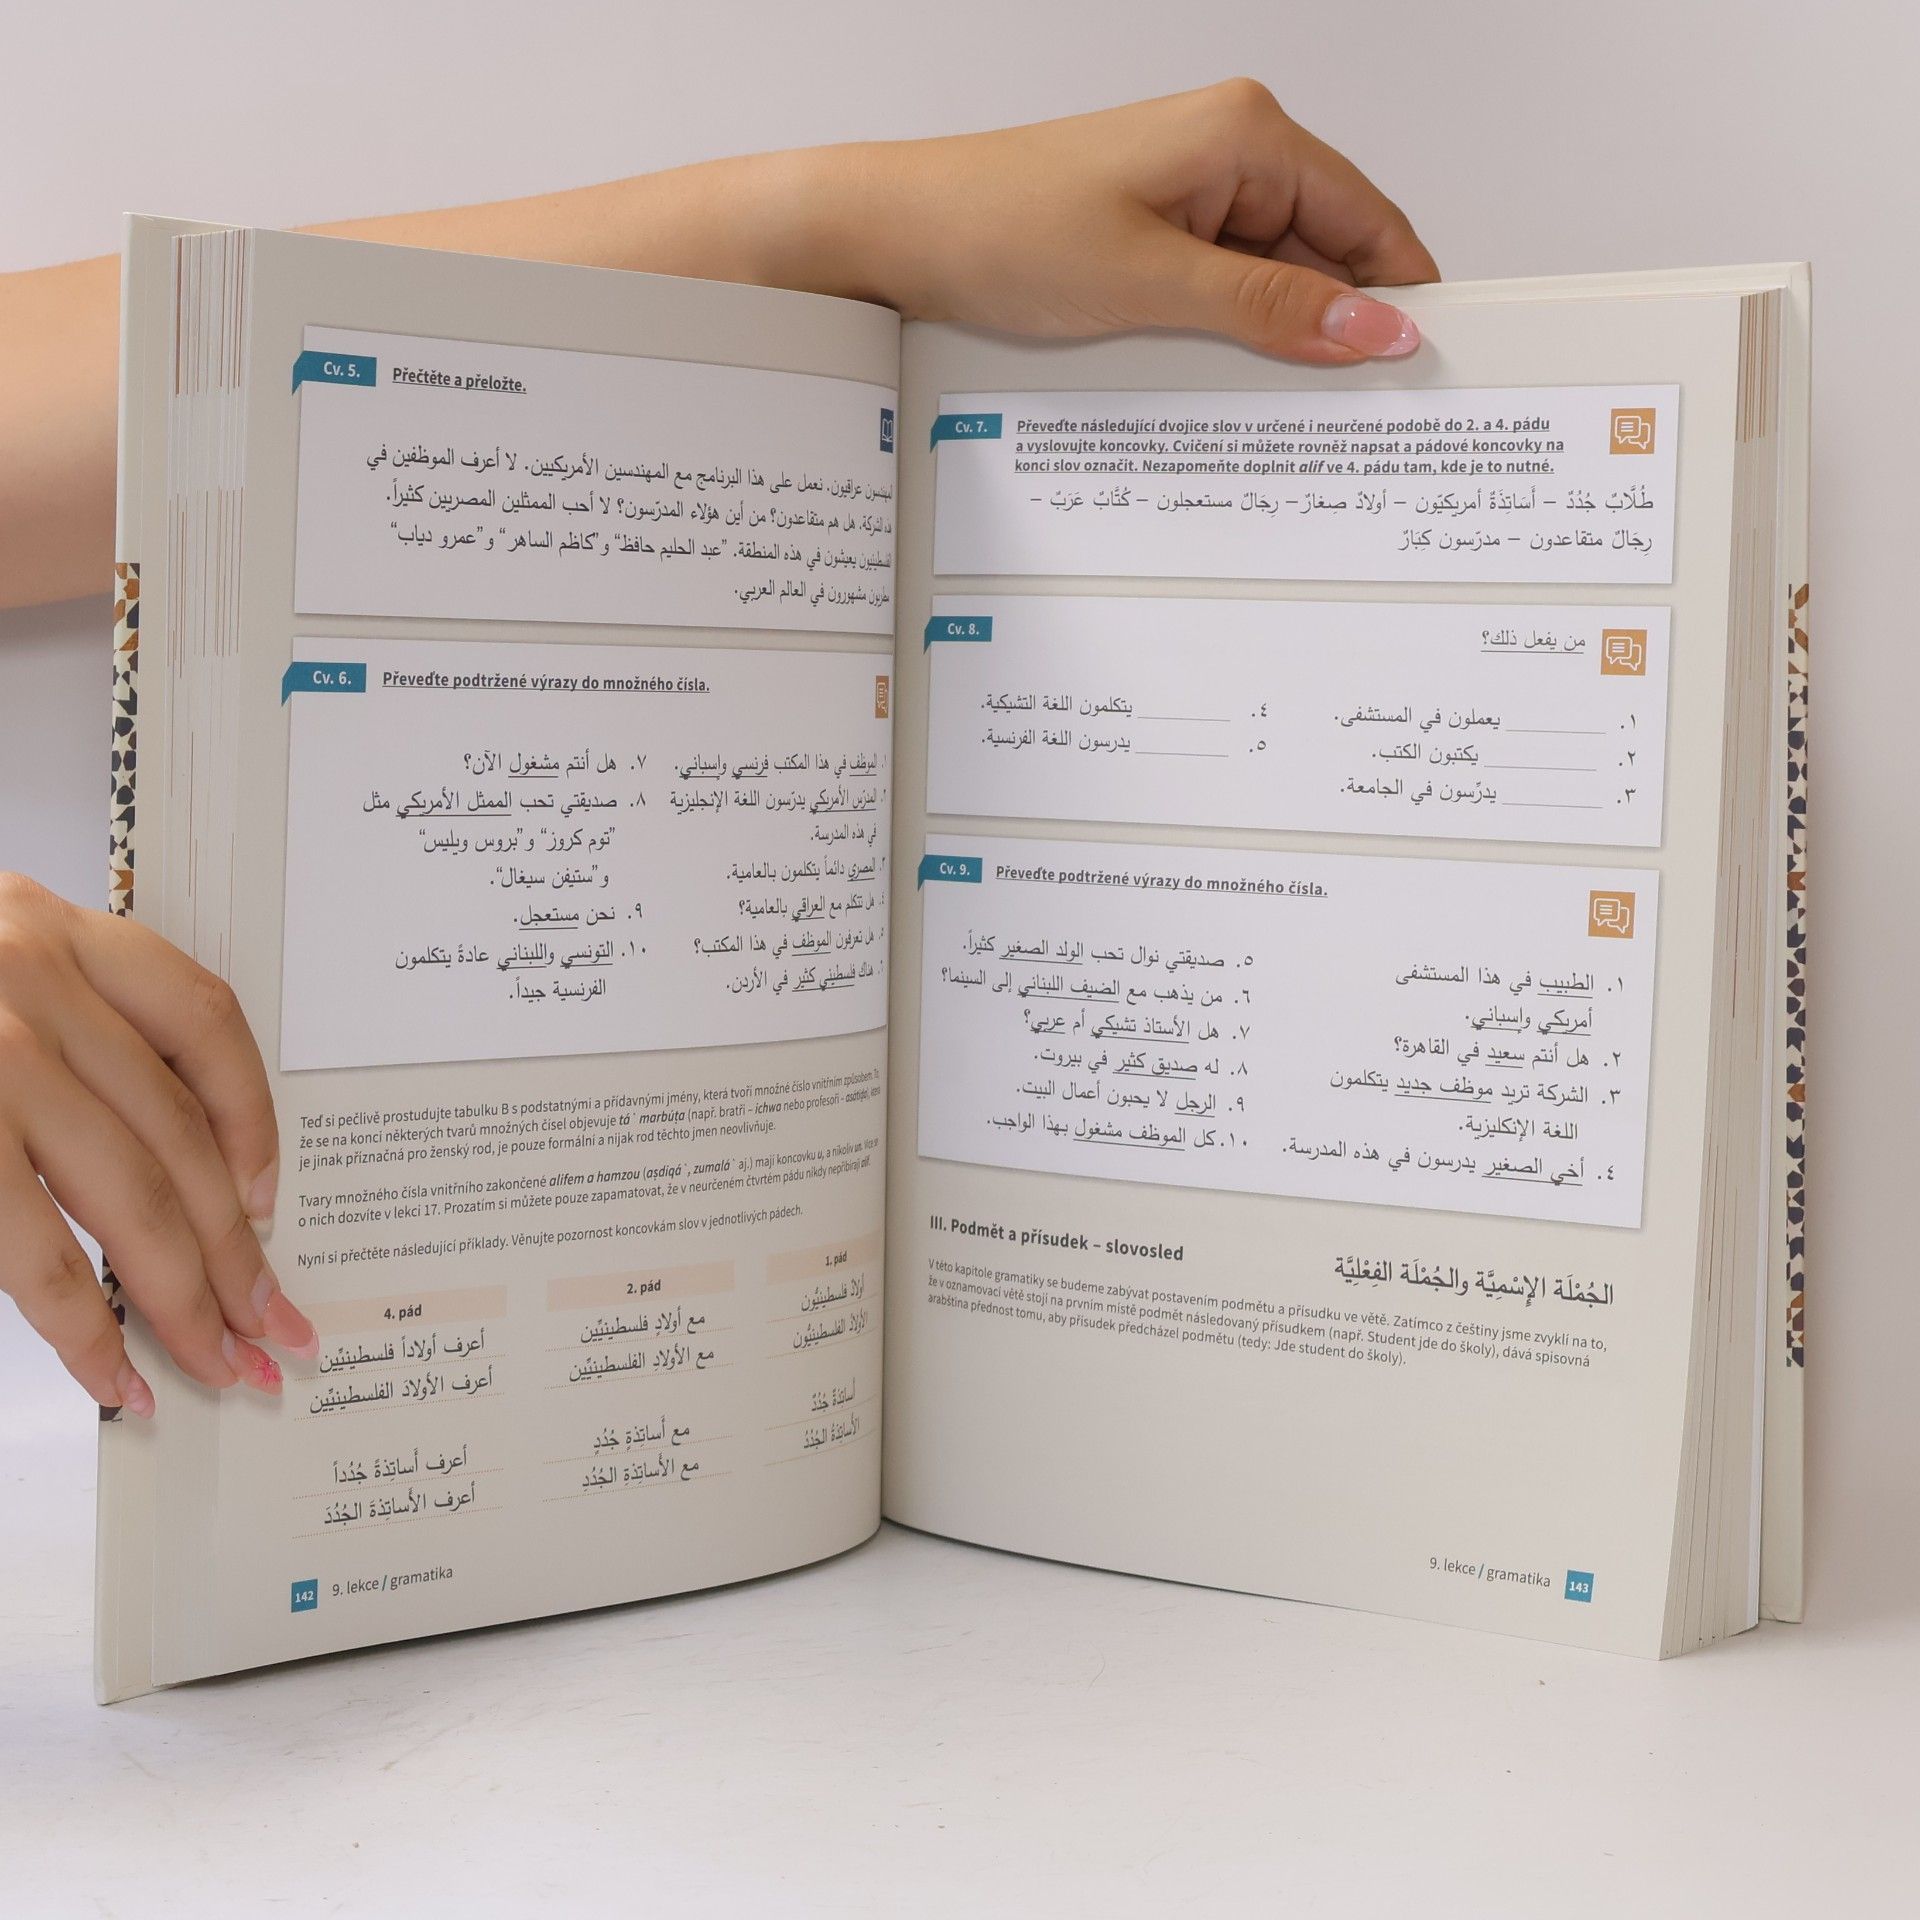 Cv. 5.
Přečtěte a přeložte.
المهندسون عراقيون. نعمل على هذا البرنامج مع المهندسين الأمريكيين. لا أعرف الموظفين في
هذه الشركة. هل هم متقاعدون؟ من أين هؤلاء المدرّسون؟ لا أحب الممثلين المصريين كثيراً.
الفلسطينيون يعيشون في هذه المنطقة. "عبد الحليم حافظ" و"كاظم الساهر" و"عمرو دياب"
مطربون مشهورون في العالم العربي.
Cv. 6.
Převeďte podtržené výrazy do množného čísla.
١. الموظف في هذا المكتب فرنسي وإسباني.
٢. المدرّس الأمريكي يدرّسون اللغة الإنجليزية
في هذه المدرسة.
٣. المصري دائماً يتكلمون بالعامية.
٤. هل تتكلم مع العراقي بالعامية؟
٥. هل تعرفون الموظف في هذا المكتب؟
٦. هناك فلسطيني كثير في الأردن.
٧. هل أنتم مشغول الآن؟
٨. صديقتي تحب الممثل الأمريكي مثل
"توم كروز" و"بروس ويليس"
و"ستيفن سيغال".
٩. نحن مستعجل.
١٠. التونسي واللبناني عادةً يتكلمون
الفرنسية جيداً.
Teď si pečlivě prostudujte tabulku B s podstatnými a přídavnými jmény, která tvoří množné číslo vnitřním způsobem. To,
že se na konci některých tvarů množných čísel objevuje tá´ marbúṭa (např. bratři – ichwa nebo profesoři – asátidha), která
je jinak příznačná pro ženský rod, je pouze formální a nijak rod těchto jmen neovlivňuje.
Tvary množného čísla vnitřního zakončené alifem a hamzou (aṣdiqá´, zumalá´ aj.) mají koncovku u, a nikoliv un. Více se
o nich dozvíte v lekci 17. Prozatím si můžete pouze zapamatovat, že v neurčeném čtvrtém pádu nikdy nepřibírají alif.
Nyní si přečtěte následující příklady. Věnujte pozornost koncovkám slov v jednotlivých pádech.
4. pád 2. pád 1. pád
أولادٌ فلسطينيُّون مع أولادٍ فلسطينيِّين أعرف أولاداً فلسطينيِّين
الأولادُ الفلسطينيُّون مع الأولادِ الفلسطينيِّين أعرف الأولادَ الفلسطينيِّين
أساتِذةٌ جُدُدٌ مع أساتِذةٍ جُدُدٍ أعرف أساتِذةً جُدُداً
الأساتِذةُ الجُدُدُ مع الأساتِذةِ الجُدُدِ أعرف الأساتِذةَ الجُدُدَ
142 9. lekce / gramatika
Cv. 7.
Převeďte následující dvojice slov v určené i neurčené podobě do 2. a 4. pádu
a vyslovujte koncovky. Cvičení si můžete rovněž napsat a pádové koncovky na
konci slov označit. Nezapomeňte doplnit alif ve 4. pádu tam, kde je to nutné.
طُلَّابٌ جُدُدٌ – أَسَاتِذَةٌ أمريكيّون – أولادٌ صِغارٌ – رِجَالٌ مستعجلون – كُتَّابٌ عَرَبٌ –
رِجَالٌ متقاعدون – مدرّسون كِبَارٌ
Cv. 8.
من يفعل ذلك؟
١. ________ يعملون في المستشفى.
٢. ________ يكتبون الكتب.
٣. ________ يدرِّسون في الجامعة.
٤. ________ يتكلمون اللغة التشيكية.
٥. ________ يدرسون اللغة الفرنسية.
Cv. 9.
Převeďte podtržené výrazy do množného čísla.
١. الطبيب في هذا المستشفى
أمريكي وإسباني.
٢. هل أنتم سعيد في القاهرة؟
٣. الشركة تريد موظف جديد يتكلمون
اللغة الإنكليزية.
٤. أخي الصغير يدرسون في هذه المدرسة.
٥. صديقتي نوال تحب الولد الصغير كثيراً.
٦. من يذهب مع الضيف اللبناني إلى السينما؟
٧. هل الأستاذ تشيكي أم عربي؟
٨. له صديق كثير في بيروت.
٩. الرجل لا يحبون أعمال البيت.
١٠. كل الموظف مشغول بهذا الواجب.
III. Podmět a přísudek – slovosled
الجُمْلَة الإِسْمِيَّة والجُمْلَة الفِعْلِيَّة
V této kapitole gramatiky se budeme zabývat postavením podmětu a přísudku ve větě. Zatímco z češtiny jsme zvyklí na to,
že v oznamovací větě stojí na prvním místě podmět následovaný přísudkem (např. Student jde do školy), dává spisovná
arabština přednost tomu, aby přísudek předcházel podmětu (tedy: Jde student do školy).
9. lekce / gramatika 143